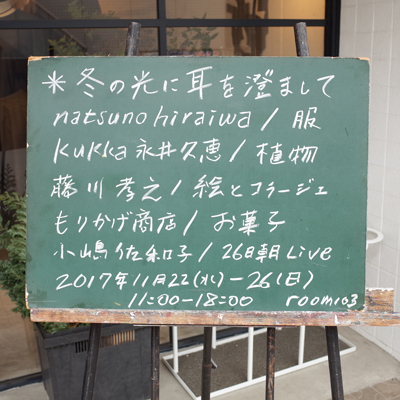 *冬の光に耳を澄まして
natsuno hiraiwa / 服
kukka 永井久恵 / 植物
藤川孝之 / 絵とコラージュ
もりかげ商店 / お菓子
小嶋佐和子 / 26日朝 Live
2017年11月22(水)-26(日)
11:00-18:00 room103